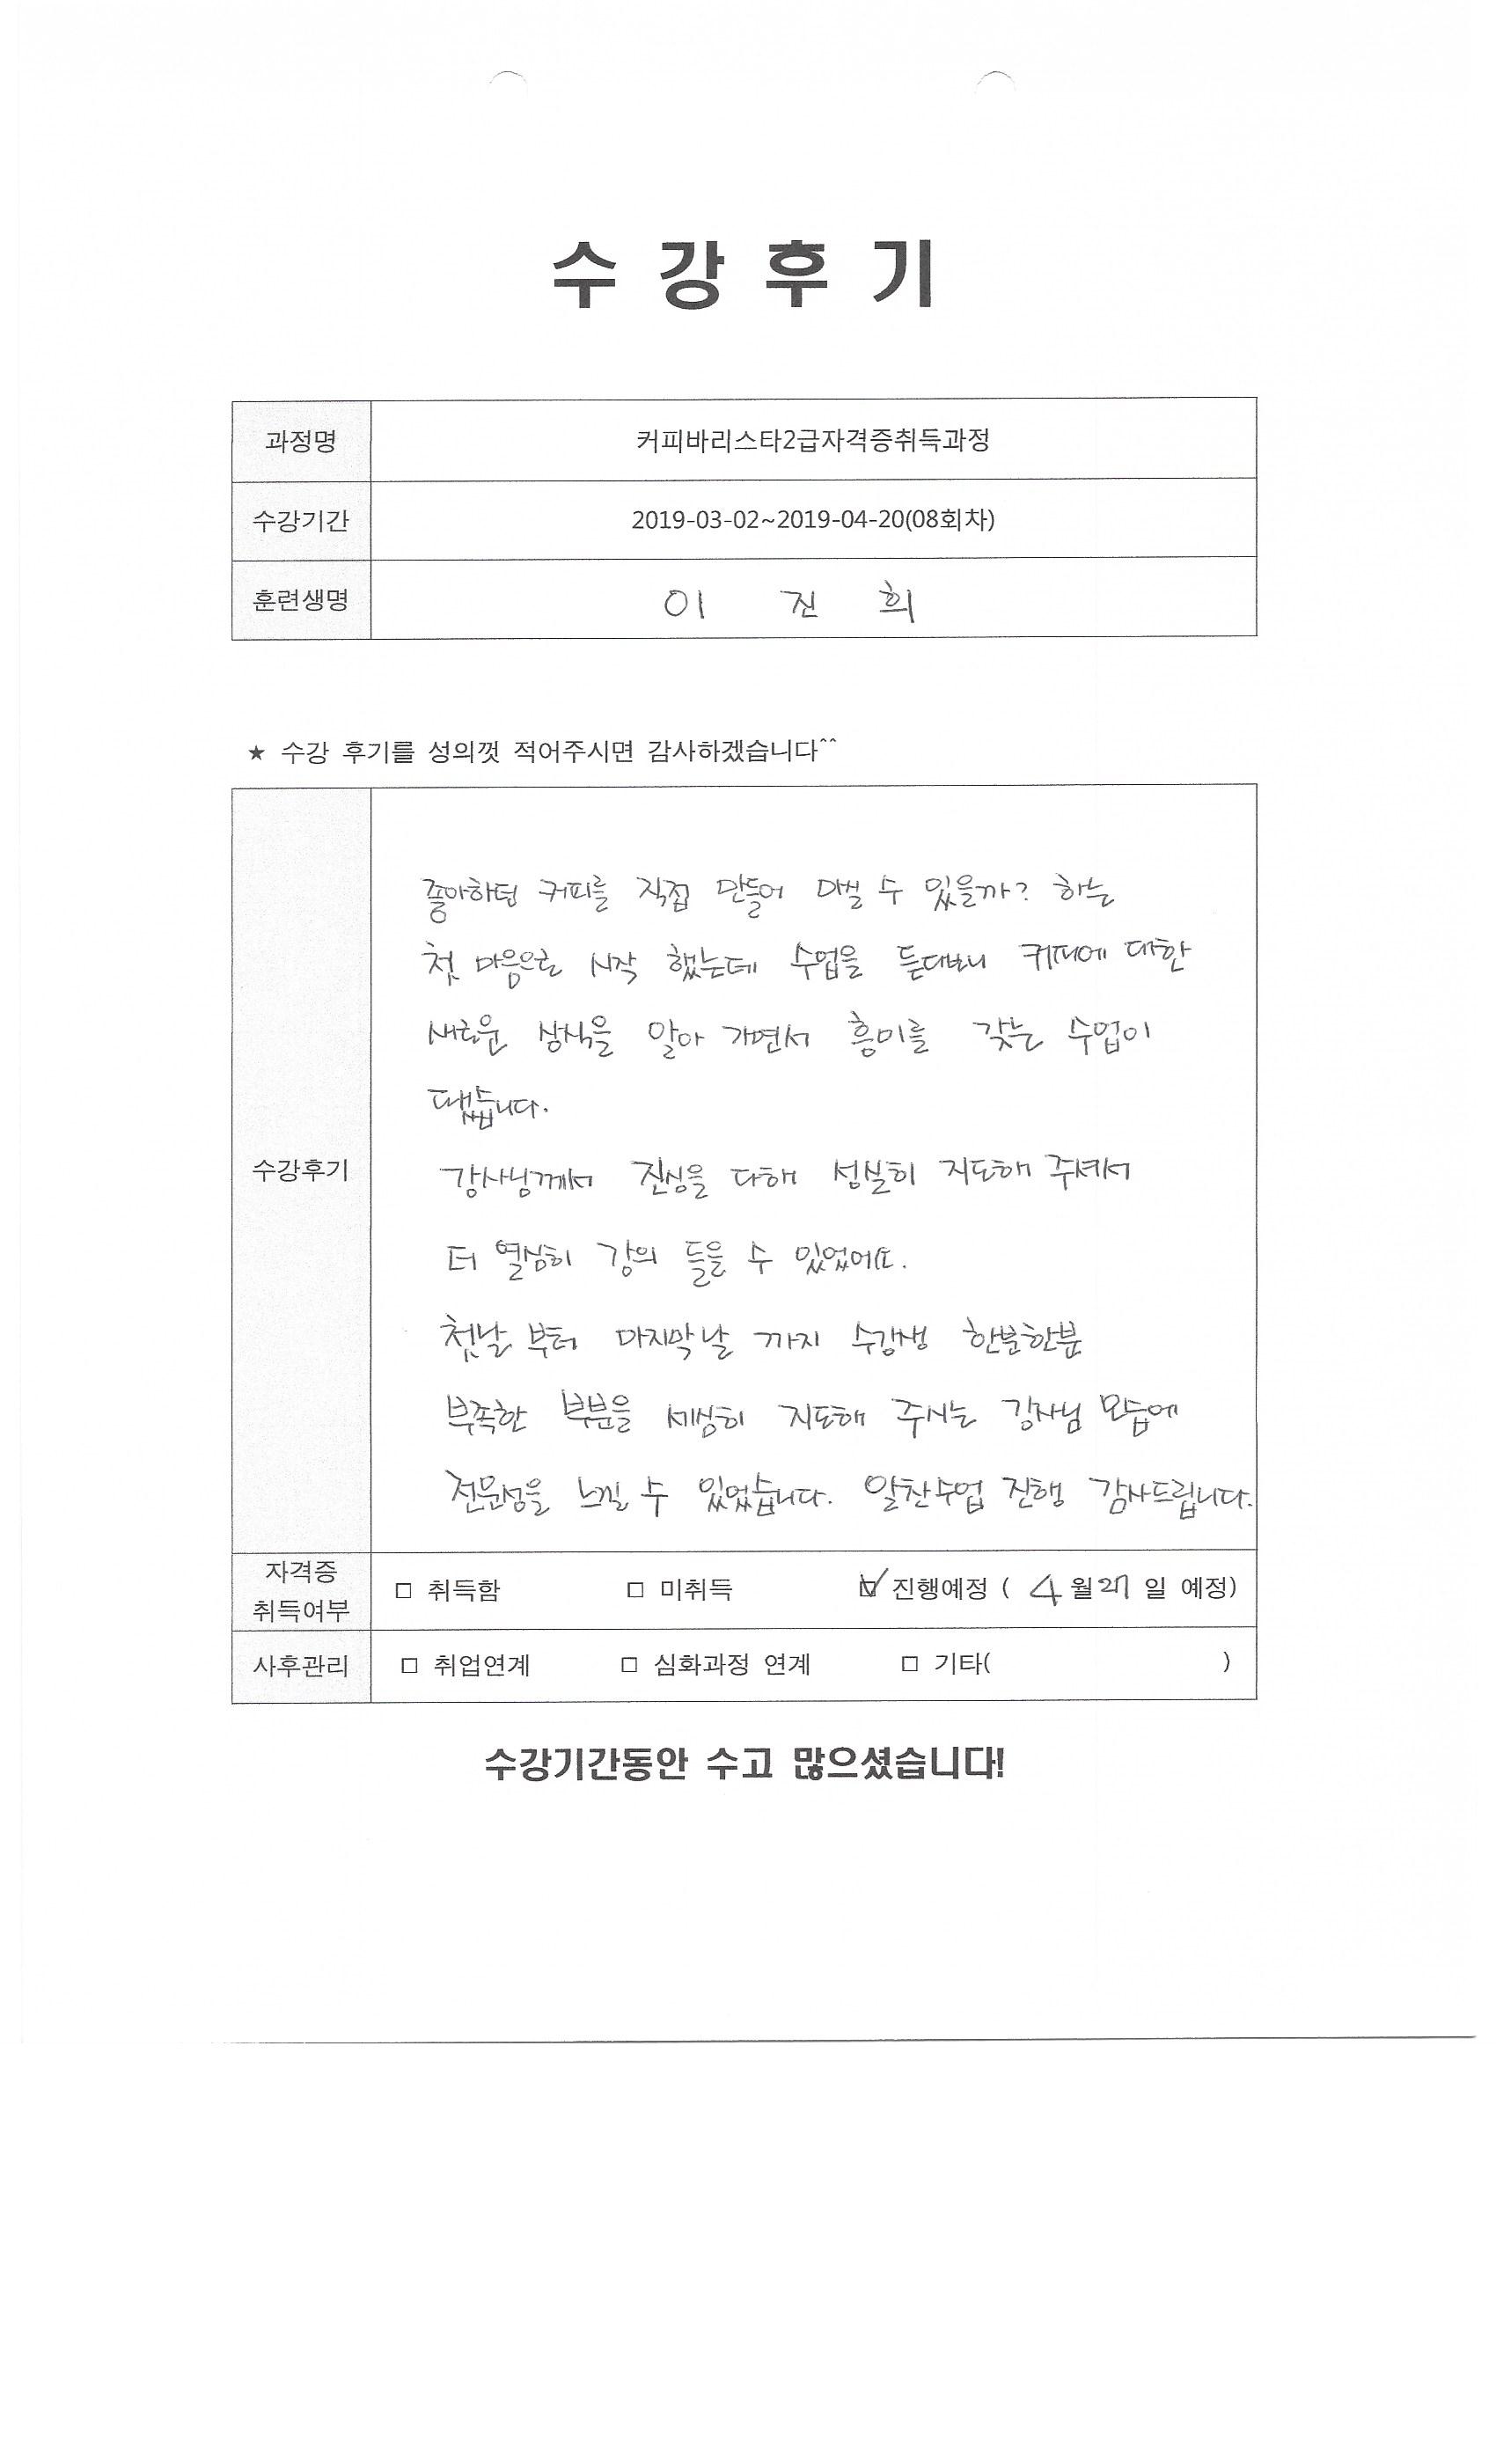 수 강 후 기
과정명 커피바리스타2급자격증취득과정
수강기간 2019-03-02~2019-04-20(08회차)
훈련생명 이 진 희
★ 수강 후기를 성의껏 적어주시면 감사하겠습니다^^
좋아하던 커피를 직접 만들어 마실 수 있을까? 하는
첫 마음으로 시작 했는데 수업을 듣다보니 커피에 대한
새로운 상식을 알아 가면서 흥미를 갖는 수업이
됐습니다.
수강후기
강사님께서 진심을 다해 성실히 지도해 주셔서
더 열심히 강의 들을 수 있었어요.
첫날 부터 마지막날 까지 수강생 한분한분
부족한 부분을 세심히 지도해 주시는 강사님 모습에
전문성을 느낄 수 있었습니다. 알찬수업 진행 감사드립니다.
자격증
취득여부 □ 취득함 □ 미취득 ☑ 진행예정 ( 4 월 27 일 예정)
사후관리 □ 취업연계 □ 심화과정 연계 □ 기타( )
수강기간동안 수고 많으셨습니다!